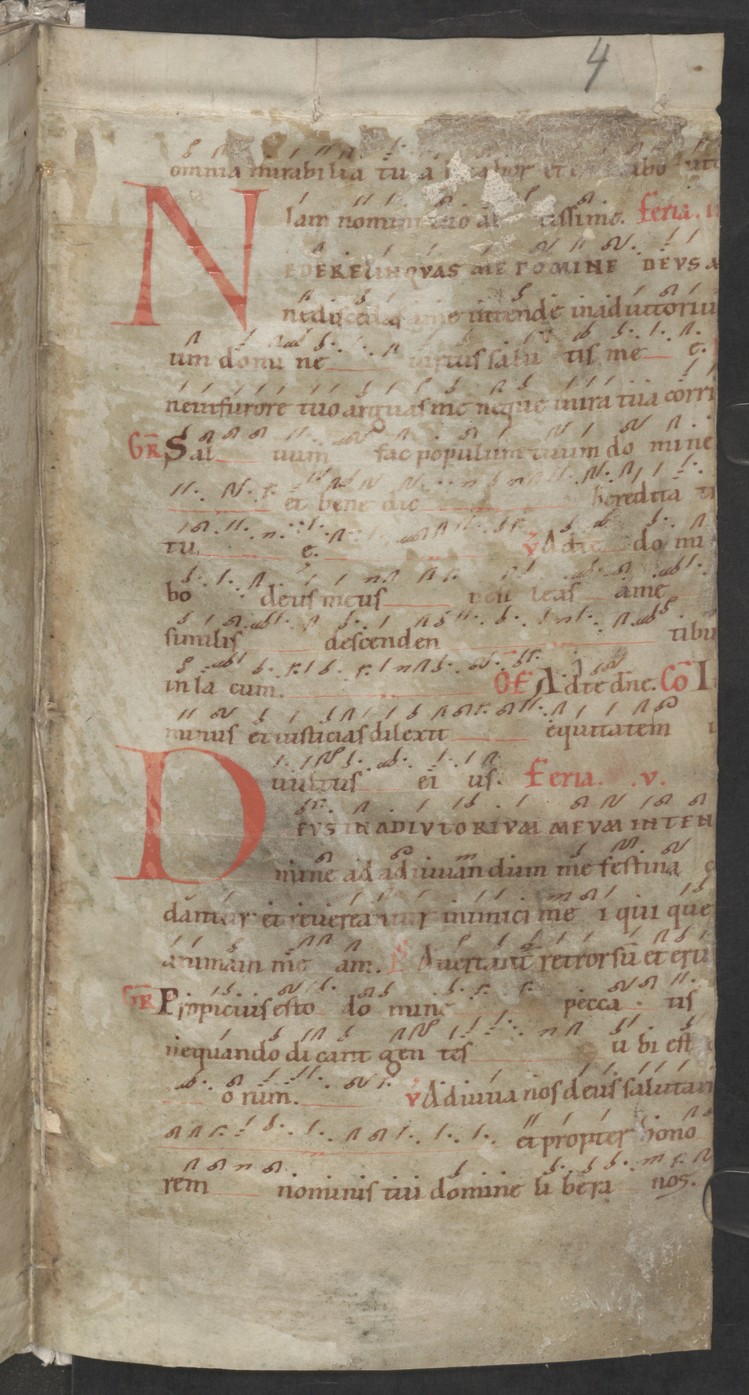 4
omnia mirabilia tu a
lam nomini tuo al tissime. Feria.
NEDERELINQVAS ME DOMINE DEVS
ne discedas a me intende in adiutoriu
um domi ne virtus salu tis me e.
ne in furore tuo arguas me neque in ira tua corri
GR Sal uum fac populum tuum do mine
et bene dic heredita
tu e. V Ad te do mi
bo deus meus ne si leas a me
similis descenden tibu
in la cum. OF Ad te dne. CO
minus et iusticias dilexit equitatem
uultus ei us. Feria. v.
DEVS IN ADIVTORIVM MEVM INTEN
mine ad adiuuan dum me festina
dantur et reuerea ntur inimici me i qui que
animam me am. Auertant retrorsu et eru
GR Propicius esto do mine pecca tis
nequando dicant gen tes u bi est
o rum. V Adiuua nos deus salutar
et propter hono
rem nominis tui domine li bera nos.